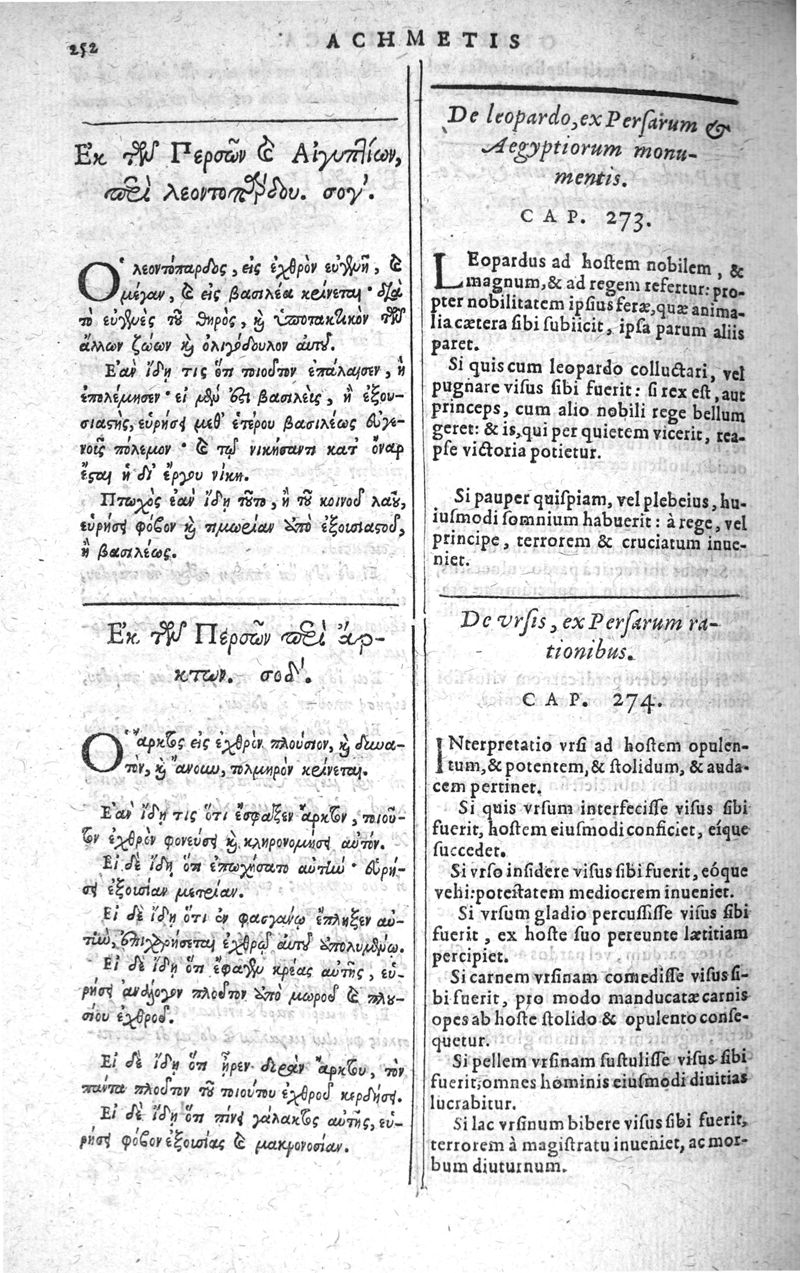 252
ACHMETIS
Ἐκ τῶν Περσῶν καὶ Αἰγυπτίων,
περὶ λεοντοπάρδου. σογ΄.
Ὁ λεοντόπαρδος, εἰς ἐχθρὸν εὐγενῆ, καὶ
μέγαν, καὶ εἰς βασιλέα κρίνεται· διὰ
τὸ εὐγενὲς τοῦ θηρὸς, καὶ ὑποτακτικὸν τῶν
ἄλλων ζώων καὶ ὀλιγόδουλον αὐτοῦ.
Ἐὰν ἴδῃ τις ὅτι τοιοῦτον ἐπάλαισεν, ἢ
ἐπολέμησεν· εἰ μὲν ἔστι βασιλεὺς, ἢ ἐξου-
σιαστὴς, εὑρήσει μεθ' ἑτέρου βασιλέως εὐγε-
νοῦς πόλεμον· καὶ τῷ νικήσαντι κατ' ὄναρ
ἔσται ἡ δι' ἔργου νίκη.
Πτωχὸς ἐὰν ἴδῃ τοῦτο, ἢ τοῦ κοινοῦ λαοῦ,
εὑρήσει φόβον καὶ τιμωρίαν ὑπὸ ἐξουσιαστοῦ,
ἢ βασιλέως.
Ἐκ τῶν Περσῶν περὶ ἄρ-
κτων. σοδ΄.
Ὁ ἄρκτος εἰς ἐχθρὸν πλούσιον, καὶ δυνα-
τὸν, καὶ ἄνουν, τολμηρὸν κρίνεται.
Ἐὰν ἴδῃ τις ὅτι ἔσφαξεν ἄρκτον, τοιοῦ-
τον ἐχθρὸν φονεύσει καὶ κληρονομήσει αὐτόν.
Εἰ δὲ ἴδῃ ὅτι ἐπωχήσατο αὐτὴν· εὑρή-
σει ἐξουσίαν μετρίαν.
Εἰ δὲ ἴδῃ ὅτι ἐν φασγάνῳ ἔπληξεν αὐ-
τὴν, ἐπιχρήσεται ἐχθρῷ αὐτοῦ ἀπολυμένῳ.
Εἰ δὲ ἴδῃ ὅτι ἔφαγεν κρέας αὐτῆς, εὑ-
ρήσει ἀνάλογον πλοῦτον ἀπὸ μωροῦ καὶ πλου-
σίου ἐχθροῦ.
Εἰ δὲ ἴδῃ ὅτι ἦρεν δορὰν ἄρκτου, τὸν
πάντα πλοῦτον τοῦ τοιούτου ἐχθροῦ κερδήσει.
Εἰ δὲ ἴδῃ ὅτι πίνει γάλακτος αὐτῆς, εὑ-
ρήσει φόβον ἐξουσίας καὶ μακρονοσίαν.
De leopardo, ex Persarum &
Aegyptiorum monu-
mentis.
CAP. 273.
LEopardus ad hostem nobilem, &
magnum, & ad regem refertur: pro-
pter nobilitatem ipsius feræ, quæ anima-
lia cætera sibi subiicit, ipsa parum aliis
paret.
Si quis cum leopardo colluctari, vel
pugnare visus sibi fuerit: si rex est, aut
princeps, cum alio nobili rege bellum
geret: & is, qui per quietem vicerit, rea-
pse victoria potietur.
Si pauper quispiam, vel plebeius, hu-
iusmodi somnium habuerit: à rege, vel
principe, terrorem & cruciatum inue-
niet.
De vrsis, ex Persarum ra-
tionibus.
CAP. 274.
INterpretatio vrsi ad hostem opulen-
tum, & potentem, & stolidum, & auda-
cem pertinet.
Si quis vrsum interfecisse visus sibi
fuerit, hostem eiusmodi conficiet, eíque
succedet.
Si vrso insidere visus sibi fuerit, eóque
vehi: potestatem mediocrem inueniet.
Si vrsum gladio percussisse visus sibi
fuerit, ex hoste suo pereunte lætitiam
percipiet.
Si carnem vrsinam comedisse visus si-
bi fuerit, pro modo manducatæ carnis
opes ab hoste stolido & opulento conse-
quetur.
Si pellem vrsinam sustulisse visus sibi
fuerit, omnes hominis eiusmodi diuitias
lucrabitur.
Si lac vrsinum bibere visus sibi fuerit,
terrorem à magistratu inueniet, ac mor-
bum diuturnum.